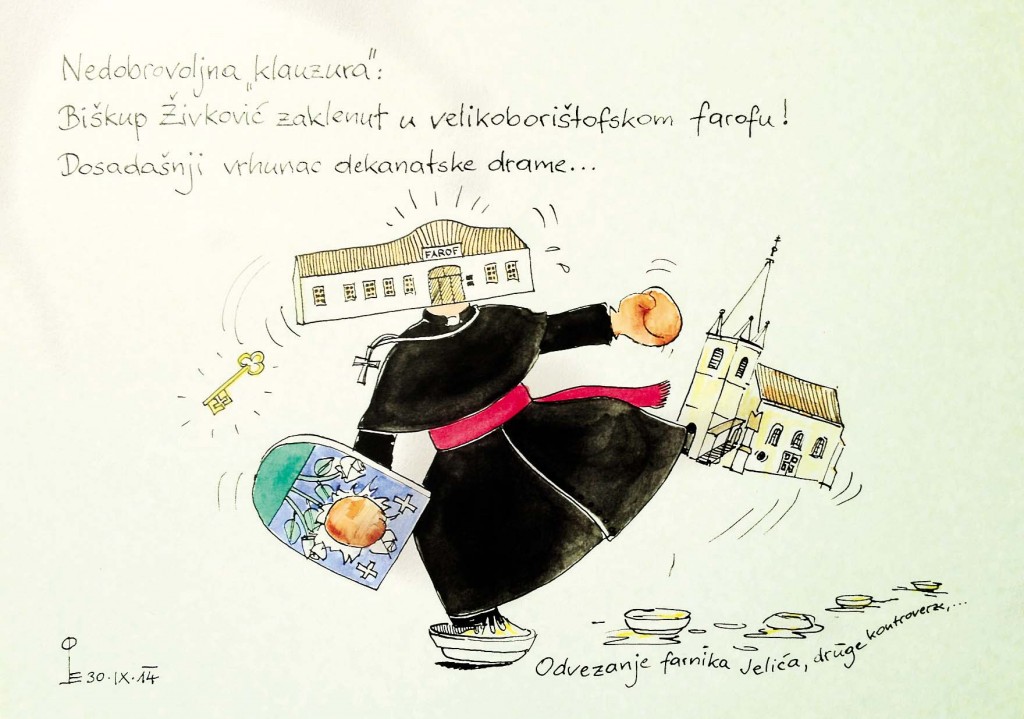 Nedobrovoljna „klauzura“:
Biškup Živković zaklenut u velikoborištofskom farofu!
Dosadašnji vrhunac dekanatske drame...
FAROF
Odvezanje farnika Jelića, druge kontroverze,...
30·IX·14